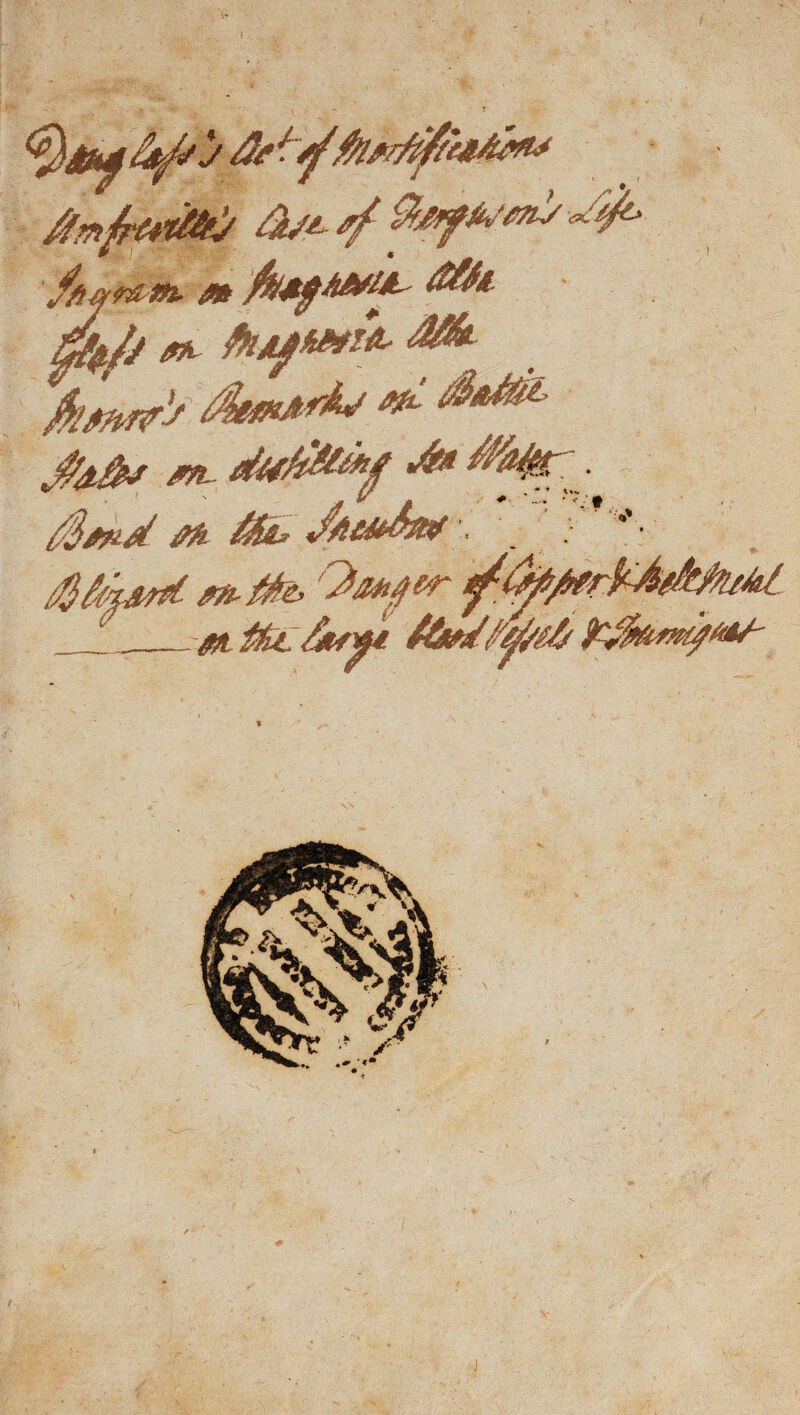 Douglass's Act. of Mortifications
Amfreville's Case of Ferguson's Life
Ingram on Magnesia Alba
Glass on Magnesia Alba
Monro's Remarks on Battie
Hales on distilling Sea Water
Bond on the Incubus
Blizard on the Danger of Copper & Bell Metal
———— on the large Blood Vessels & Tourniquet